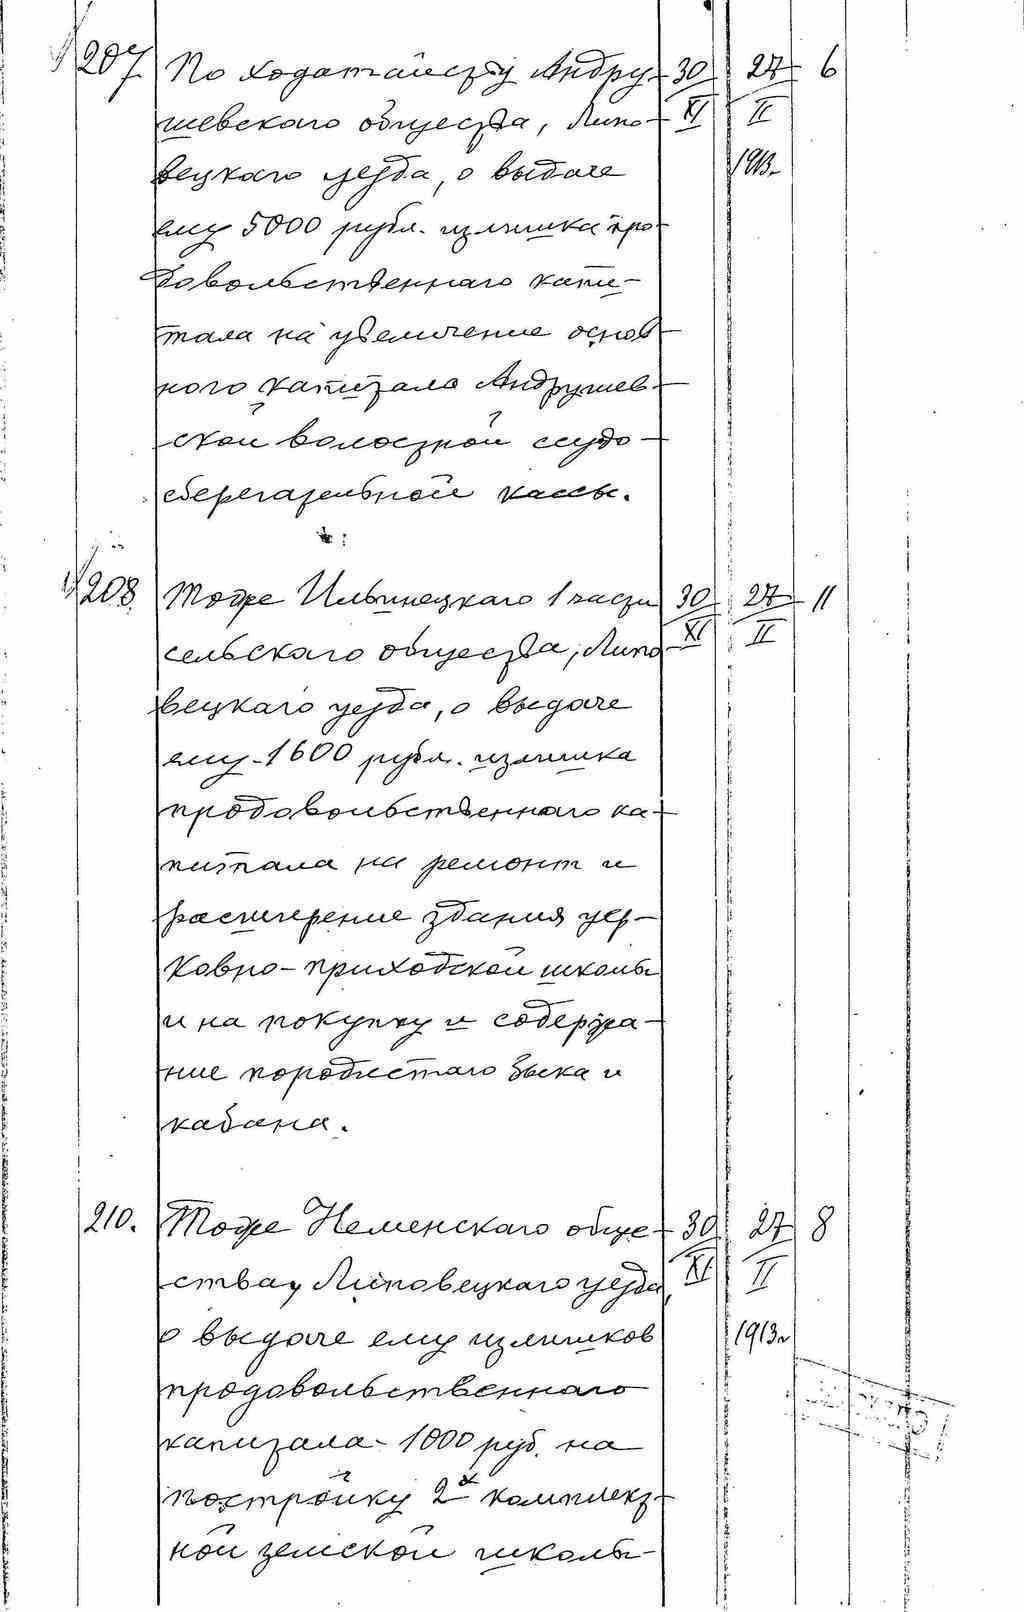 207. По ходатайству Андру- 30/XI 27/II 6
шевскаго общества, Липо-
вецкаго уезда, о выдаче 1913г.
ему 5000 рубл. излишка про-
довольственнаго капи-
тала на увеличение основ-
ного капитала Андрушев-
ской волостной ссудо-
сберегательной кассы.
208. Тоже Ильинецкаго 1 части 30/XI 27/II 11
сельскаго общества, Липо
вецкаго уезда, о выдаче
ему 1600 рубл. излишка
продовольственнаго ка-
питала на ремонт и
расширение здания цер-
ковно-приходской школы
и на покупку и содержа-
ние породистаго быка и
кабана.
210. Тоже Неменскаго обще- 30/XI 27/II 8
ства, Липовецкаго уезда,
о выдаче ему излишков 1913г
продовольственнаго
капитала - 1000 руб. на
постройку 2х комплект-
ной земской школы-